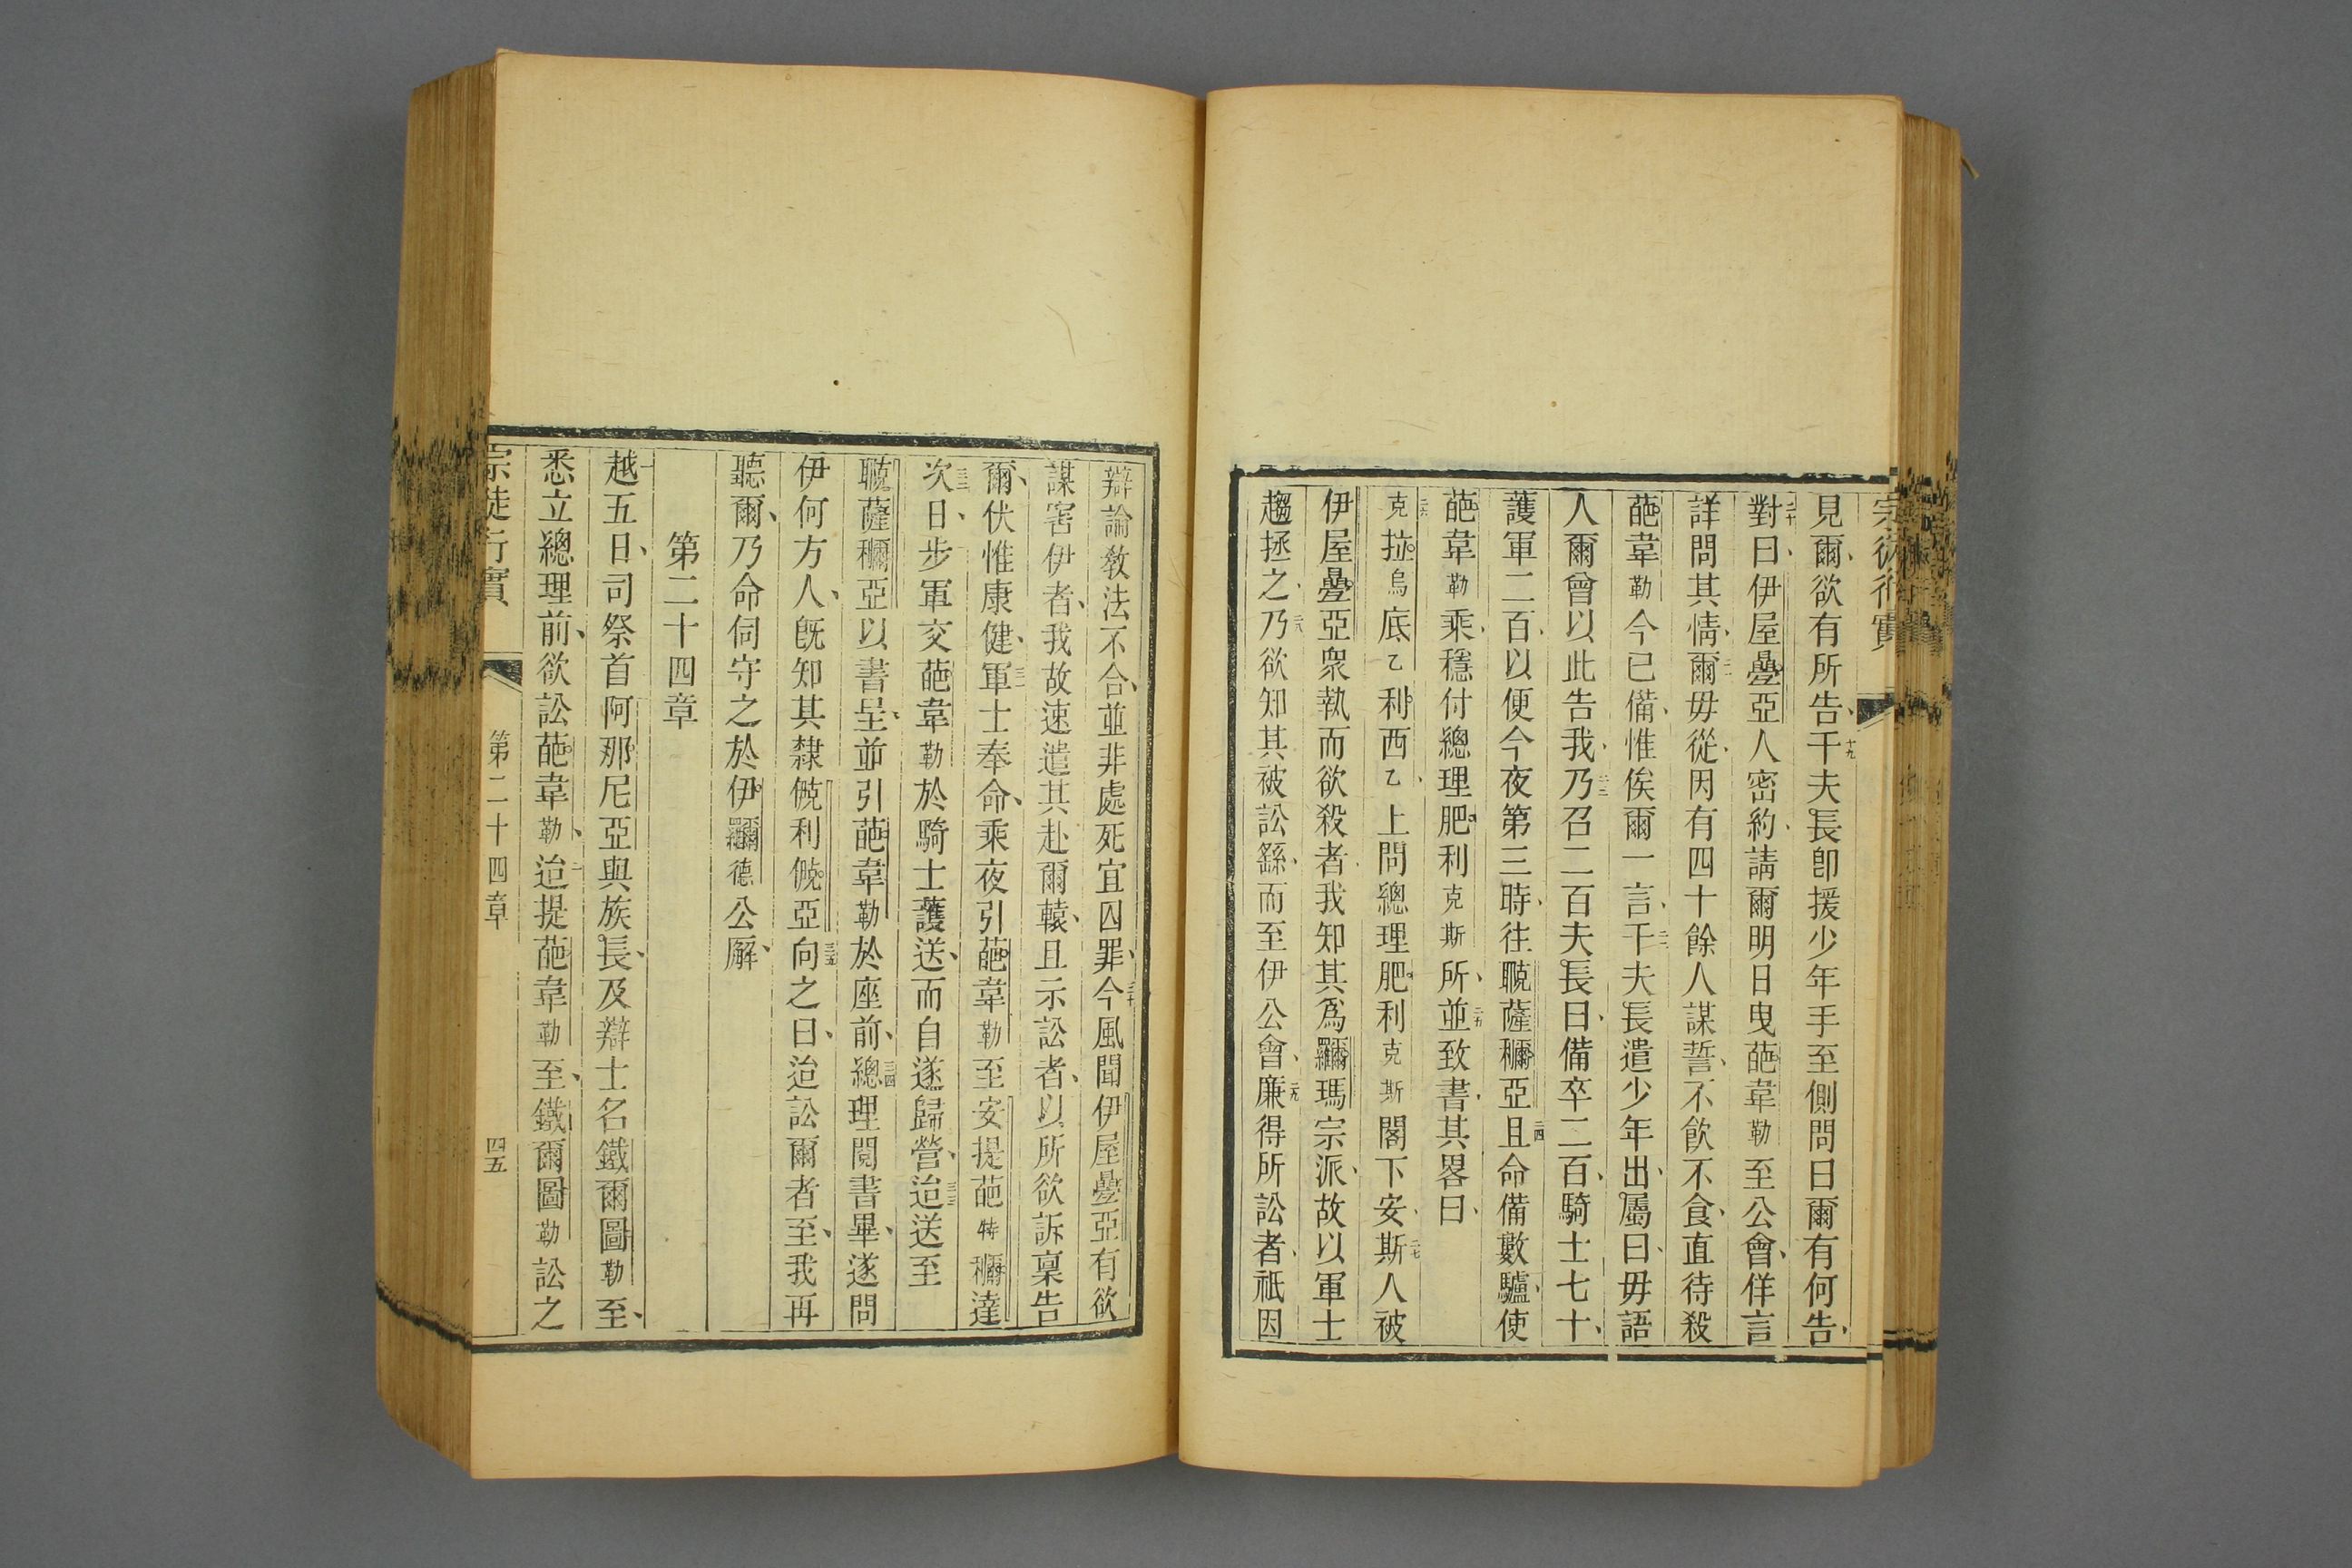 宗徒行實
見爾、欲有所告、十九千夫長卽援少年手至側問曰爾有何告、
二十對曰、伊屋疊亞人密約、請爾明日曳葩韋勒至公會、佯言
詳問其情、二一爾毋從、因有四十餘人謀誓、不飮不食、直待殺
葩韋勒今已備、惟俟爾一言、二二千夫長遣少年出、屬曰、毋語
人爾曾以此告我、二三乃召二百夫長曰、備卒二百、騎士七十、
護軍二百、以便今夜第三時、往𦗟薩穪亞、二四且命備數驢、使
葩韋勒乘、穩付總理肥利克斯所、二五並致書、其畧曰、
二六克拉烏底乙利西乙、上問總理肥利克斯閣下安、二七斯人被
伊屋疊亞衆執而欲殺者、我知其爲羅瑪宗派、故以軍士
趨拯之、二八乃欲知其被訟繇、而至伊公會、二九廉得所訟者、祇因
辯論敎法不合、並非處死宜囚罪、三十今風聞伊屋疊亞有欲
謀害伊者、我故速遣其赴爾轅、且示訟者、以所欲訴稟告
爾、伏惟康健、三一軍士奉命、乘夜引葩韋勒至安提葩特穪達
三二次日、步軍交葩韋勒於騎士護送、而自遂歸營、三三迨送至
𦗟薩穪亞以書呈、並引葩韋勒於座前、三四總理閱書畢、遂問
伊何方人、旣知其隸𠒎利𠒎亞三五向之曰、迨訟爾者至、我再
聽爾、乃命伺守之於伊羅德公廨、
第二十四章
一越五日、司祭首阿那尼亞與族長、及辯士名鐵爾圖勒至、
悉立總理前、欲訟葩韋勒、二迨提葩韋勒至、鐵爾圖勒訟之
宗徒行實
第二十四章
四五